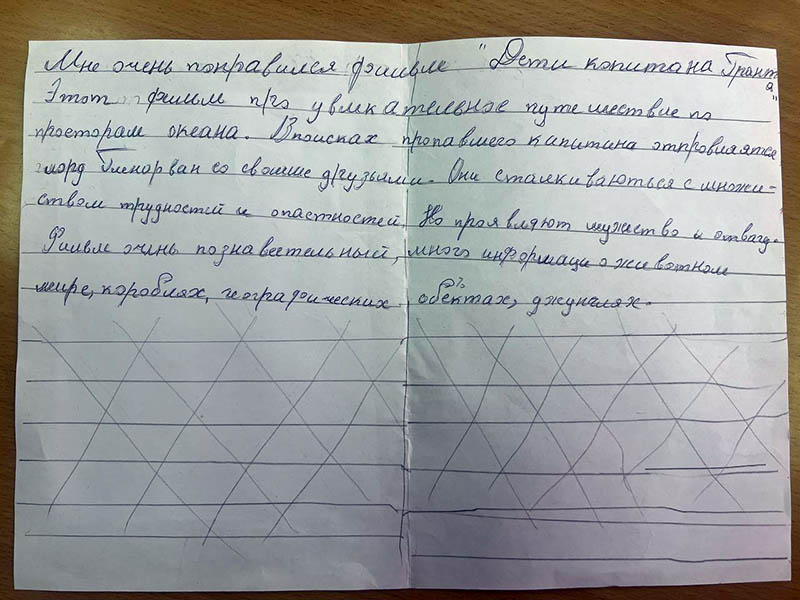 Мне очень понравился фильм "Дети капитана Гранта"
Этот фильм про увлкательное путешествие по
просторам океана. В поисках пропавшего капитина отпровляятся
лорд Гленарван со своими друзьями. Они сталкиваються с множи-
ством трудностей и опастностей. Но проявляют мужество и отвагу.
Фильм очень познавтельный, много информаци о животном
мире, кораблях, географических объектах, джунглях.